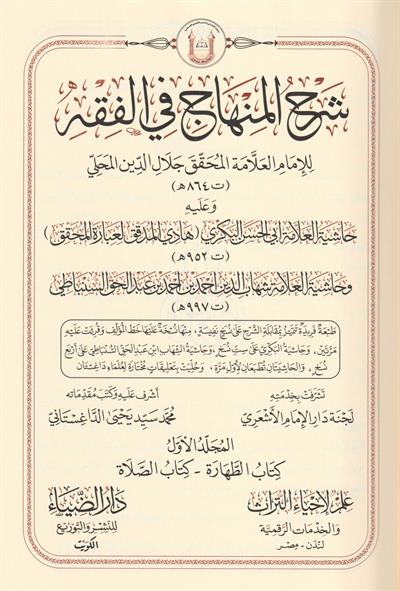 شرح المنهاج في الفقه
للإمام العلامة المحقق جلال الدين المحلي
(ت ٨٦٤هـ)
وعليه
حاشية العلامة أبي الحسن البكري (هادي المدقق لعبارة المحقق)
(ت ٩٥٢هـ)
وحاشية العلامة شهاب الدين أحمد بن أحمد بن عبد الحق السنباطي
(ت ٩٩٧هـ)
طبعة فريدة تتميز بمقابلة الشرح على نسخ نفيسة، منها نسخة عليها خط المؤلف وقرئت عليه
مرتين، وحاشية البكري على ست نسخ، وحاشية الشهاب ابن عبد الحق السنباطي على أربع
نسخ، والحاشيتان تطبعان لأول مرة، وحليت بتعليقات مختارة لعلماء داغستان
تشرفت بخدمته
لجنة دار الإمام الأشعري
أشرف عليه وكتب مقدماته
محمد سيد يحيى الداغستاني
المجلد الأول
كتاب الطهارة - كتاب الصلاة
علم لإحياء التراث
والخدمات الرقمية
لندن - مصر
دار الضياء
للنشر والتوزيع
الكويت